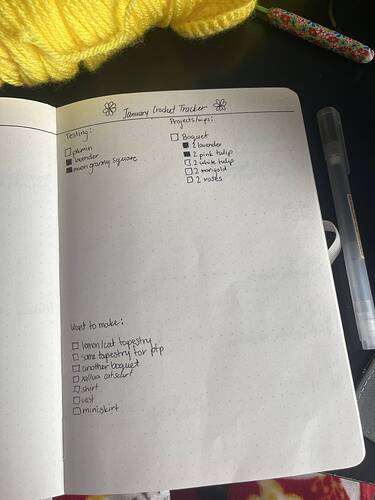 January Crochet Tracker
Testing:
lavender
moon granny square
Projects/wips:
Boquet
2 lavender
2 pink tulip
2 white tulip
2 marigold
2 roses
Want to make:
lemon/cat tapestry
some tapestry for pfp
another boquet
shirt
vest
miniskirt